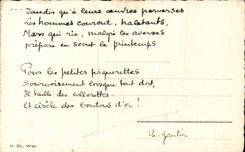 Tandis qu'à leurs œuvres perverses
Les hommes courent, haletants,
Mars qui rit, malgré les averses
Prépare en secret le printemps
Pour les petites pâquerettes
Sournoisement lorsque tout dort,
Il taille des collerettes
Et cisèle des boutons d'or !
Th. Gautier